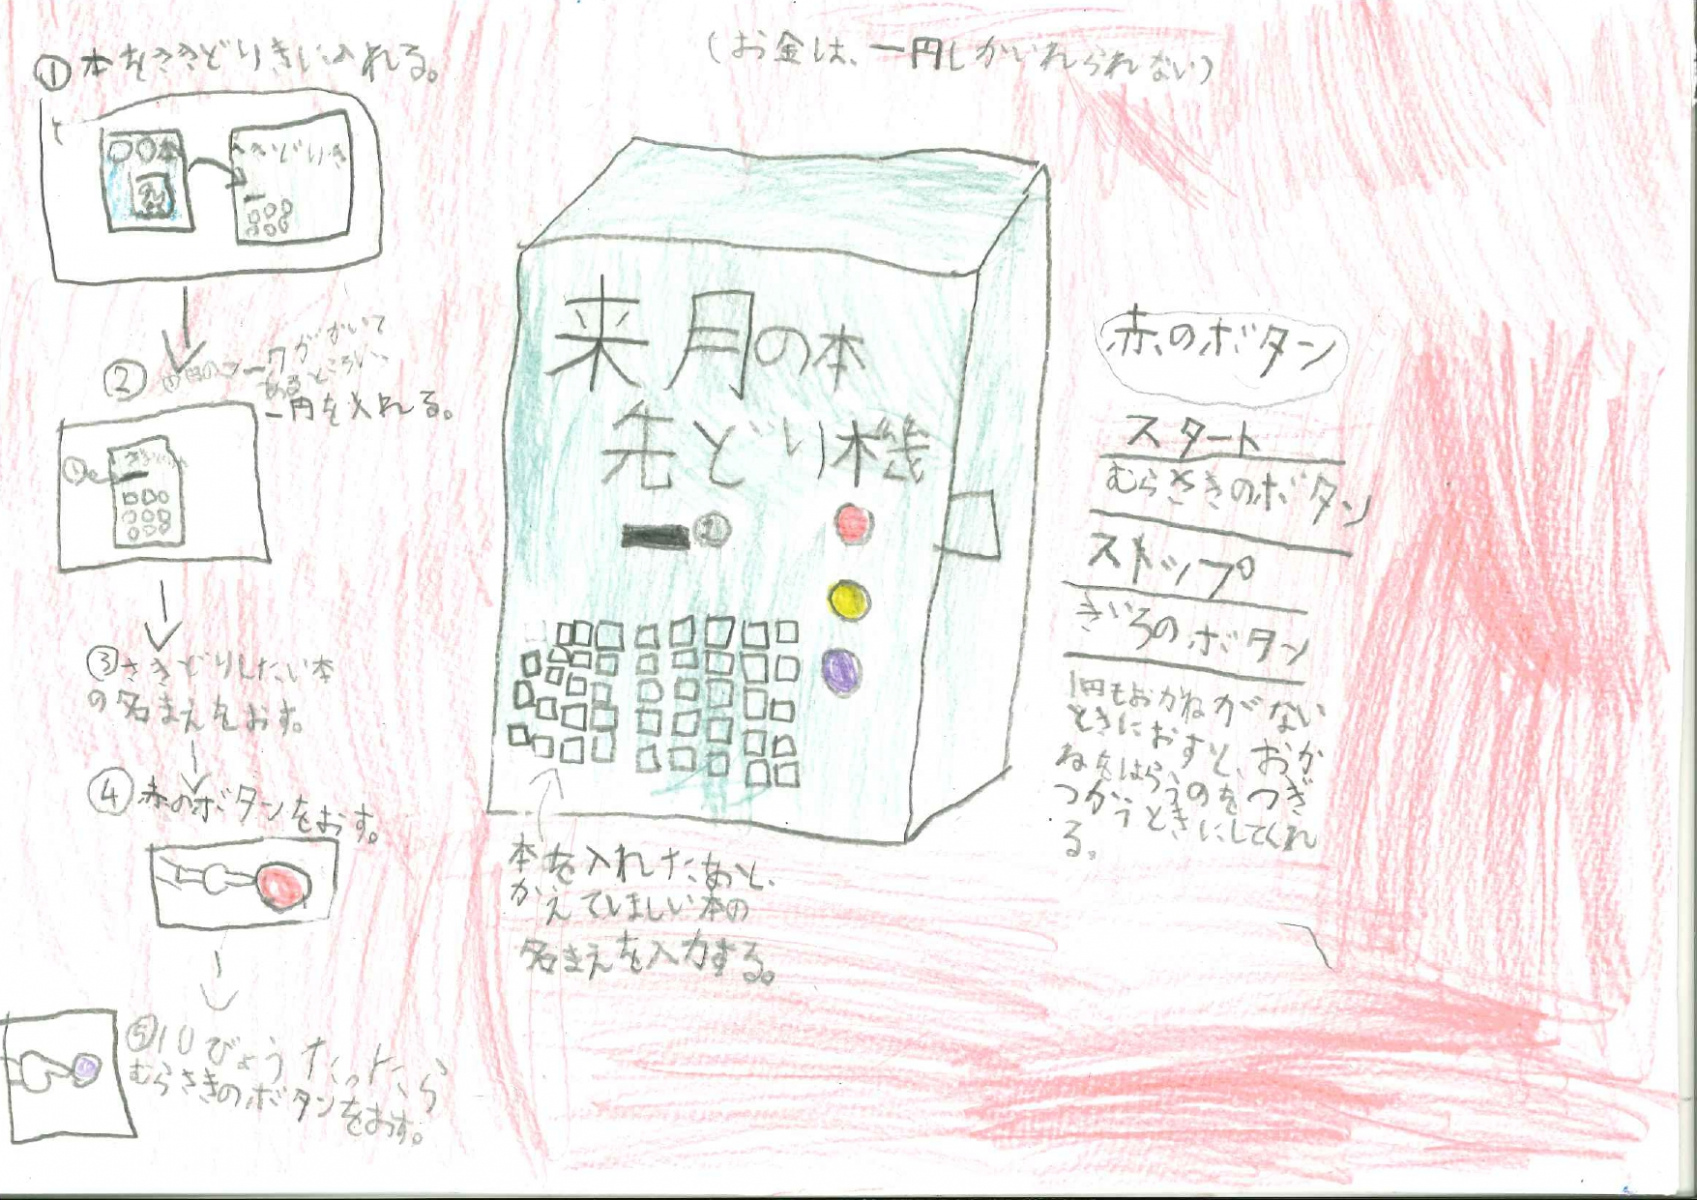 (お金は、一円しかいれられない)
①本をさきどりきに入れる。
〇〇本
さきどりき
②
マークがかいて
あるところに、
一円を入れる。
③さきどりしたい本
の名まえをおす。
④赤のボタンをおす。
⑤10びょうたったら
むらさきのボタンをおす。
来月の本
先どり機
①
本を入れたあと、
かえてほしい本の
名まえを入力する。
赤のボタン
スタート
むらさきのボタン
ストップ
きいろのボタン
1円もおかねがない
ときにおすと、おか
ねをはらうのをつぎ
つかうときにしてくれ
る。